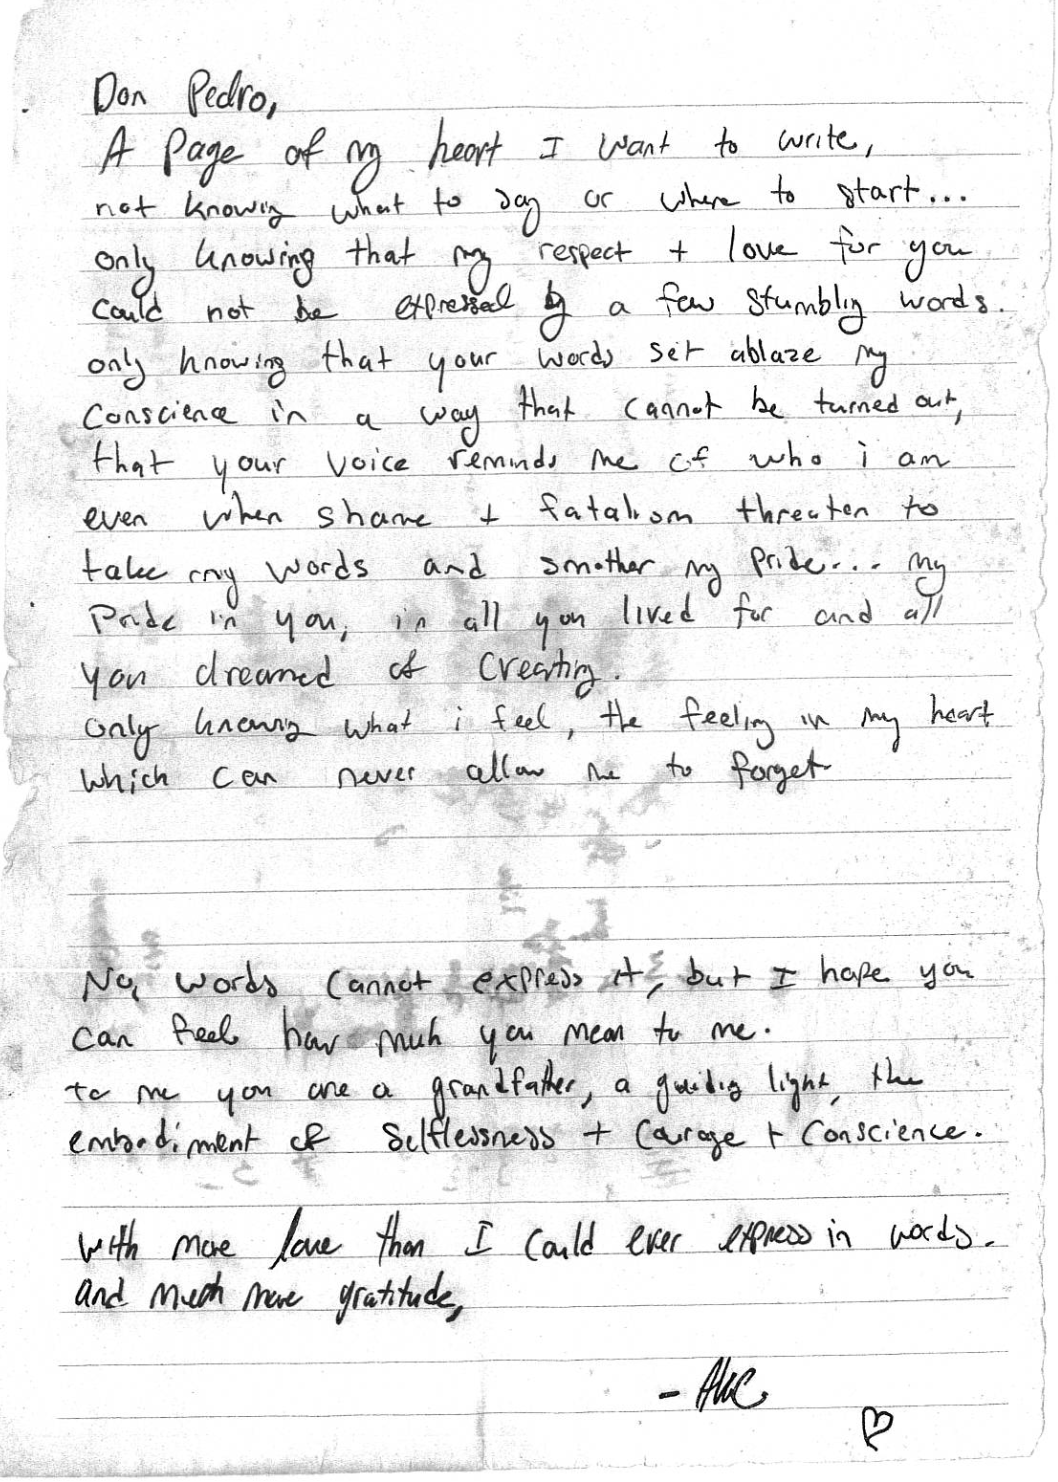 Don Pedro,
A Page of my heart I want to write,
not knowing what to say or where to start...
only knowing that my respect + love for you
could not be expressed by a few stumbling words.
only knowing that your words set ablaze my
conscience in a way that cannot be turned out,
that your voice reminds me of who i am
even when shame + fatalism threaten to
take my words and smother my pride... my
Pride in you, in all you lived for and all
you dreamed of creating.
only knowing what i feel, the feeling in my heart
which can never allow me to forget
No, words cannot express it, but I hope you
can feel how much you mean to me.
to me you are a grandfather, a guiding light, the
embodiment of selflessness + courage + conscience.
with more love than I could ever express in words.
and much more gratitude,
-